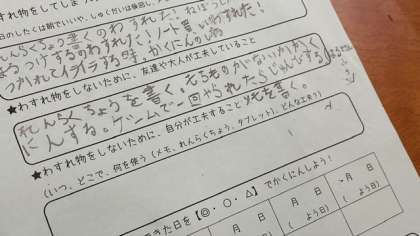 物をしてしまっ
の日のしたくは朝でいいや、しゅくだいは後回し、
んらくちょう書くのわすれた! ねぼう
まるつけするのわすれた! ノート買いわすれた!
つかれてイライラする時。かくにんの時
★わすれ物をしないために、友達や大人が工夫していること
れんらくちょうを書く。もちものがないかかく
にんする。ゲームで一回やられたらじゅんびする
メモを書く。
★わすれ物をしないために、自分が工夫すること
(いつ、どこで、何を使う(メモ、れんらくちょう、タブレット)、どんな工夫?)
きた日を【◎・○・△】でかくにんしよう!
月 日 月 日 月 日
( よう日) ( よう日) ( よう日)